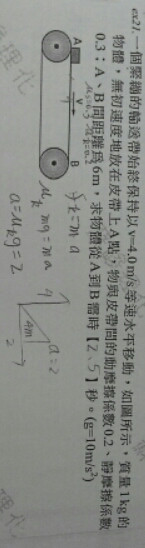 ex21. 一個緊繃的輸送帶始終保持以v=4.0m/s等速水平移動，如圖所示，質量1kg的
物體，無初速度地放在皮帶上A點，物與皮帶間的動摩擦係數0.2、靜摩擦係數
0.3；A、B間距離為6m，求物體從A到B需時【2.5】秒。(g=10m/s²)
A
v
B
μₖmg=ma
a=μₖg=2
4m
a=2
2